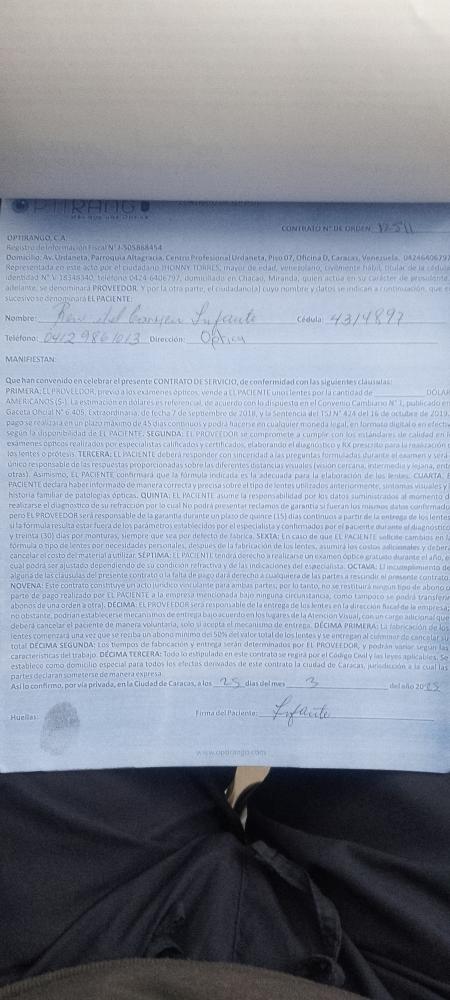 OPTIRANGO
CONTRATO N° DE ORDEN: 12511
OPTIRANGO, C.A.
Registro de Información Fiscal N° J-505868454
Domicilio: Av. Urdaneta, Parroquia Altagracia, Centro Profesional Urdaneta, Piso 07, Oficina D, Caracas, Venezuela. 0424640679
Representada en este acto por el ciudadano JHONNY TORRES, mayor de edad, venezolano, civilmente hábil, titular de la cédula
identidad N° V- 18348340, teléfono 0424-6406797, domiciliado en Chacao, Miranda, quien actúa en su carácter de presidente
adelante, se denominará PROVEEDOR. Y por la otra parte, el ciudadano(a) cuyo nombre y datos se indican a continuación, que e
sucesivo se denominará EL PACIENTE:
Nombre: del Carmen Infante Cédula: 4314897
Teléfono: 04129861013 Dirección: Optica
MANIFIESTAN:
Que han convenido en celebrar el presente CONTRATO DE SERVICIO, de conformidad con las siguientes cláusulas:
PRIMERA: EL PROVEEDOR, previo a los exámenes ópticos, vende a EL PACIENTE unos lentes por la cantidad de DÓLAR
AMERICANOS ($-). La estimación en dólares es referencial, de acuerdo con lo dispuesto en el Convenio Cambiario N° 1, publicado en
Gaceta Oficial N° 6.405, Extraordinaria, de fecha 7 de septiembre de 2018, y la Sentencia del TSJ N° 424 del 16 de octubre de 2019.
pago se realizará en un plazo máximo de 45 días continuos y podrá hacerse en cualquier moneda legal, en formato digital o en efectiv
según la disponibilidad de EL PACIENTE. SEGUNDA: EL PROVEEDOR se compromete a cumplir con los estándares de calidad en l
exámenes ópticos realizados por especialistas calificados y certificados, elaborando el diagnóstico y RX prescrito para la realización
los lentes o prótesis. TERCERA: EL PACIENTE deberá responder con sinceridad a las preguntas formuladas durante el examen y será
único responsable de las respuestas proporcionadas sobre las diferentes distancias visuales (visión cercana, intermedia y lejana, entr
otras). Asimismo, EL PACIENTE confirmará que la fórmula indicada es la adecuada para la elaboración de los lentes. CUARTA: E
PACIENTE declara haber informado de manera correcta y precisa sobre el tipo de lentes utilizados anteriormente, síntomas visuales y
historia familiar de patologías ópticas. QUINTA: EL PACIENTE asume la responsabilidad por los datos suministrados al momento d
realizarse el diagnóstico de su refracción por lo cual No podrá presentar reclamos de garantía si fueran los mismos datos confirmado
pero EL PROVEEDOR será responsable de la garantía durante un plazo de quince (15) días continuos a partir de la entrega de los lentes
si la fórmula resulta estar fuera de los parámetros establecidos por el especialista y confirmados por el paciente durante el diagnóstic
y treinta (30) días por monturas, siempre que sea por defecto de fábrica. SEXTA: En caso de que EL PACIENTE solicite cambios en l
fórmula o tipo de lentes por necesidades personales, después de la fabricación de los lentes, asumirá los costos adicionales y deberá
cancelar el costo del material a utilizar. SÉPTIMA: EL PACIENTE tendrá derecho a realizarse un examen óptico gratuito durante el año, e
cual podrá ser ajustado dependiendo de su condición refractiva y de las indicaciones del especialista. OCTAVA: El incumplimiento de
alguna de las cláusulas del presente contrato o la falta de pago dará derecho a cualquiera de las partes a rescindir el presente contrato.
NOVENA: Este contrato constituye un acto jurídico vinculante para ambas partes; por lo tanto, no se restituirá ningún tipo de abono o
parte de pago realizado por EL PACIENTE a la empresa mencionada bajo ninguna circunstancia, como tampoco se podrá transferir
abonos de una orden a otra). DÉCIMA: EL PROVEEDOR será responsable de la entrega de los lentes en la dirección fiscal de la empresa;
no obstante, podrían establecerse mecanismos de entrega bajo acuerdo en los lugares de la Atención Visual, con un cargo adicional que
deberá cancelar el paciente de manera voluntaria, solo si acepta el mecanismo de entrega. DÉCIMA PRIMERA: La fabricación de los
lentes comenzará una vez que se reciba un abono mínimo del 50% del valor total de los lentes y se entregan al culminar de cancelar su
total DÉCIMA SEGUNDA: Los tiempos de fabricación y entrega serán determinados por EL PROVEEDOR, y podrán variar según las
características del trabajo. DÉCIMA TERCERA: Todo lo estipulado en este contrato se regirá por el Código Civil y las leyes aplicables. Se
establece como domicilio especial para todos los efectos derivados de este contrato la ciudad de Caracas, jurisdicción a la cual las
partes declaran someterse de manera expresa.
Así lo confirmo, por vía privada, en la Ciudad de Caracas, a los 25 días del mes 3 del año 2025
Huellas: Firma del Paciente: Infante
www.optirango.com